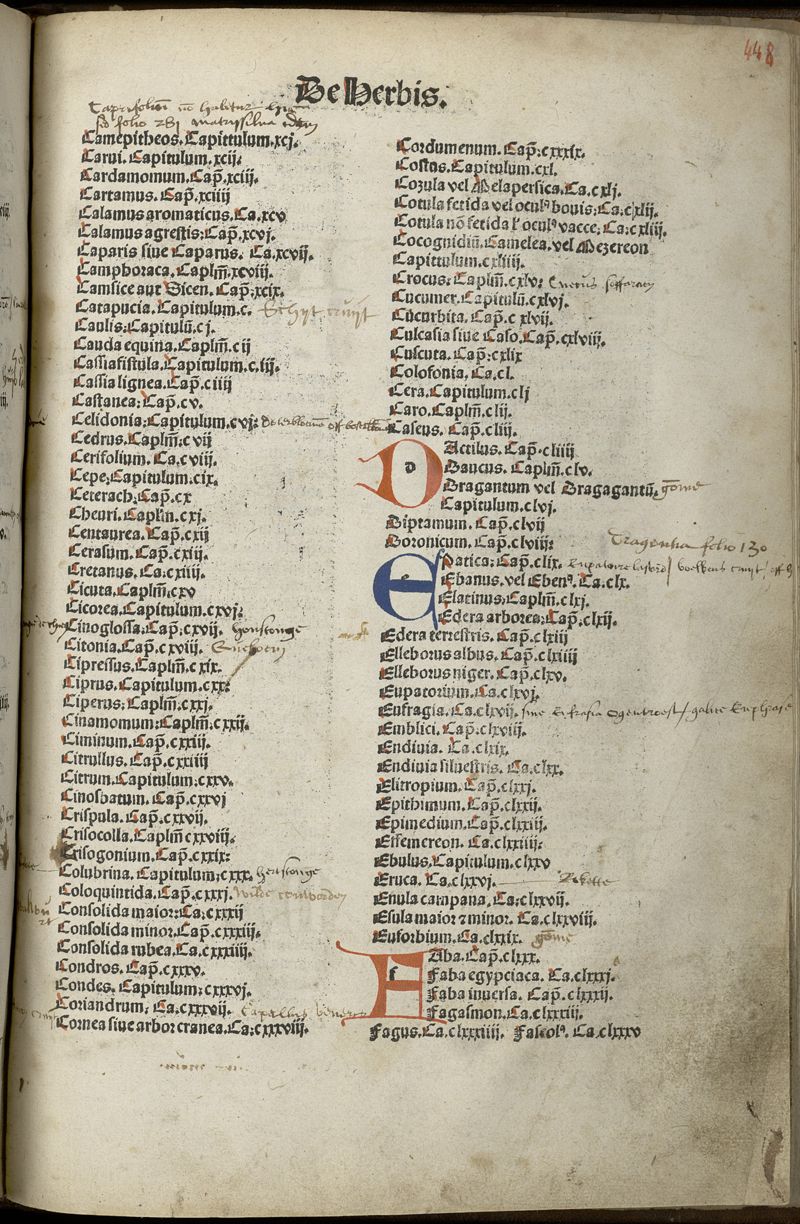 448
De Herbis.
folio
Camepitheos. Capittulum. xcj.
Carui. Capitulum. xcij.
Cardamomum. Cap̃. xciij.
Cartamus. Cap̃. xciiij
Calamus aromaticus. Ca. xcv
Calamus agrestis: Cap̃. xcvj.
Caparis siue Caparus. Ca. xcvij.
Camphoraca. Caplm̃. xcviij.
Camsice aut Sicen. Cap̃: xcix.
Catapucia. Capitulum. c.
Caulis: Capitulũ. cj.
Cauda equina. Caplm̃. cij
Cassiafistula. Capitulum. c. iij.
Cassia lignea. Cap̃. ciiij
Castanea: Cap̃. cv.
Celidonia: Capitulum. cvj:
Cedrus. Caplm̃: cvij
Cerifolium. Ca. cviij.
Cepe: Capitulum. cix.
Ceterach: Cap̃. cx
Cheuri. Caplm̃. cxj.
Centaurea. Cap̃. cxij
Cerasum. Cap̃. cxiij.
Cretanus. Ca: cxiiij.
Cicuta. Caplm̃. cxv
Cicorea. Capitulum. cxvj:
Cinoglossa: Cap̃: cxvij. honstonge
Citonia. Cap̃. cxviij.
Cipressus. Caplm̃. cxix.
Ciprus. Capitulum. cxx:
Ciperus: Caplm̃. cxxj.
Cinamomum: Caplm̃. cxxij.
Ciminum. Cap̃. cxxiij.
Citrullus. Cap̃. cxxiiij
Citrum. Capitulum: cxxv.
Cinosbatum. Cap̃. cxxvj
Crispula. Cap̃. cxxvij.
Crisocolla. Caplm̃ cxxviij.
Crisogonium. Cap̃. cxxix:
Colubrina. Capitulum: cxxx.
Coloquintida. Cap̃. cxxxj. wilde
Consolida maior: Ca: cxxxij
Consolida minor. Cap̃. cxxxiij.
Consolida rubea. Ca. cxxxiiij.
Condros. Cap̃. cxxxv.
Condes. Capitulum: cxxxvj.
Coriandrum. Ca: cxxxvij.
Cornea siue arbor cranea. Ca: cxxxviij.
Cordumenum. Cap̃: cxxxix.
Costus. Capitulum. cxl.
Cozula vel Melapersica. Ca. cxlj.
Cotula fetida vel oculꝰ bouis: Ca. cxlij.
Cotula nõ fetida ł oculꝰ vacce: Ca: cxliij.
Cocognidiũ. Camelea. vel Mezereon
Capittulum. cxliiij.
Crocus: Caplm̃. cxlv:
Cucumer. Capitulũ. cxlvj.
Cucurbita. Cap̃. cxlvij.
Culcasia siue Caso. Cap̃. cxlviij.
Cuscuta. Cap̃: cxlix
Colofonia. Ca. cl.
Cera. Capitulum. clj
Caro. Caplm̃. clij.
Caseus. Cap̃. cliij.
DActilus. Cap̃. cliiij
Daucus. Caplm̃. clv.
Dragantum vel Dragagantũ. gom̃e
Capitulum. clvj.
Diptamum. Cap̃. clvij
Doronicum. Cap̃. clviij: Dragentia folio 130
EPatica: Cap̃. clix.
Ebanus. vel Ebenꝰ. Ca. clx.
Elatinus: Caplm̃. clxj.
Edera arborea: Cap̃. clxij.
Edera terrestris. Cap̃. clxiij
Elleborus albus. Cap̃. clxiiij
Elleborus niger. Cap̃. clxv.
Eupatorium. Ca. clxvj.
Eufragia. Ca. clxvij. siue
Emblici. Cap̃. clxviij.
Endiuia. Ca. clxix.
Endiuia siluestris. Ca. clxx.
Elitropium. Cap̃. clxxj.
Epithimum. Cap̃. clxxij.
Epimedium. Cap̃. clxxiij.
Essemcreon. Ca. clxxiiij:
Ebulus. Capitulum. clxxv
Eruca. Ca. clxxvj. Rakette
Enula campana. Ca: clxxvij.
Esula maior ⁊ minor. Ca. clxxviij.
Euforbium. Ca. clxxix. gom̃e
FAba. Cap̃. clxxx.
Faba egypciaca. Ca. clxxxj.
Faba inuersa. Cap̃. clxxxij.
Fagasmon. Ca. clxxxiij.
Fagus. Ca. clxxxiiij. Faseolꝰ. Ca. clxxxv